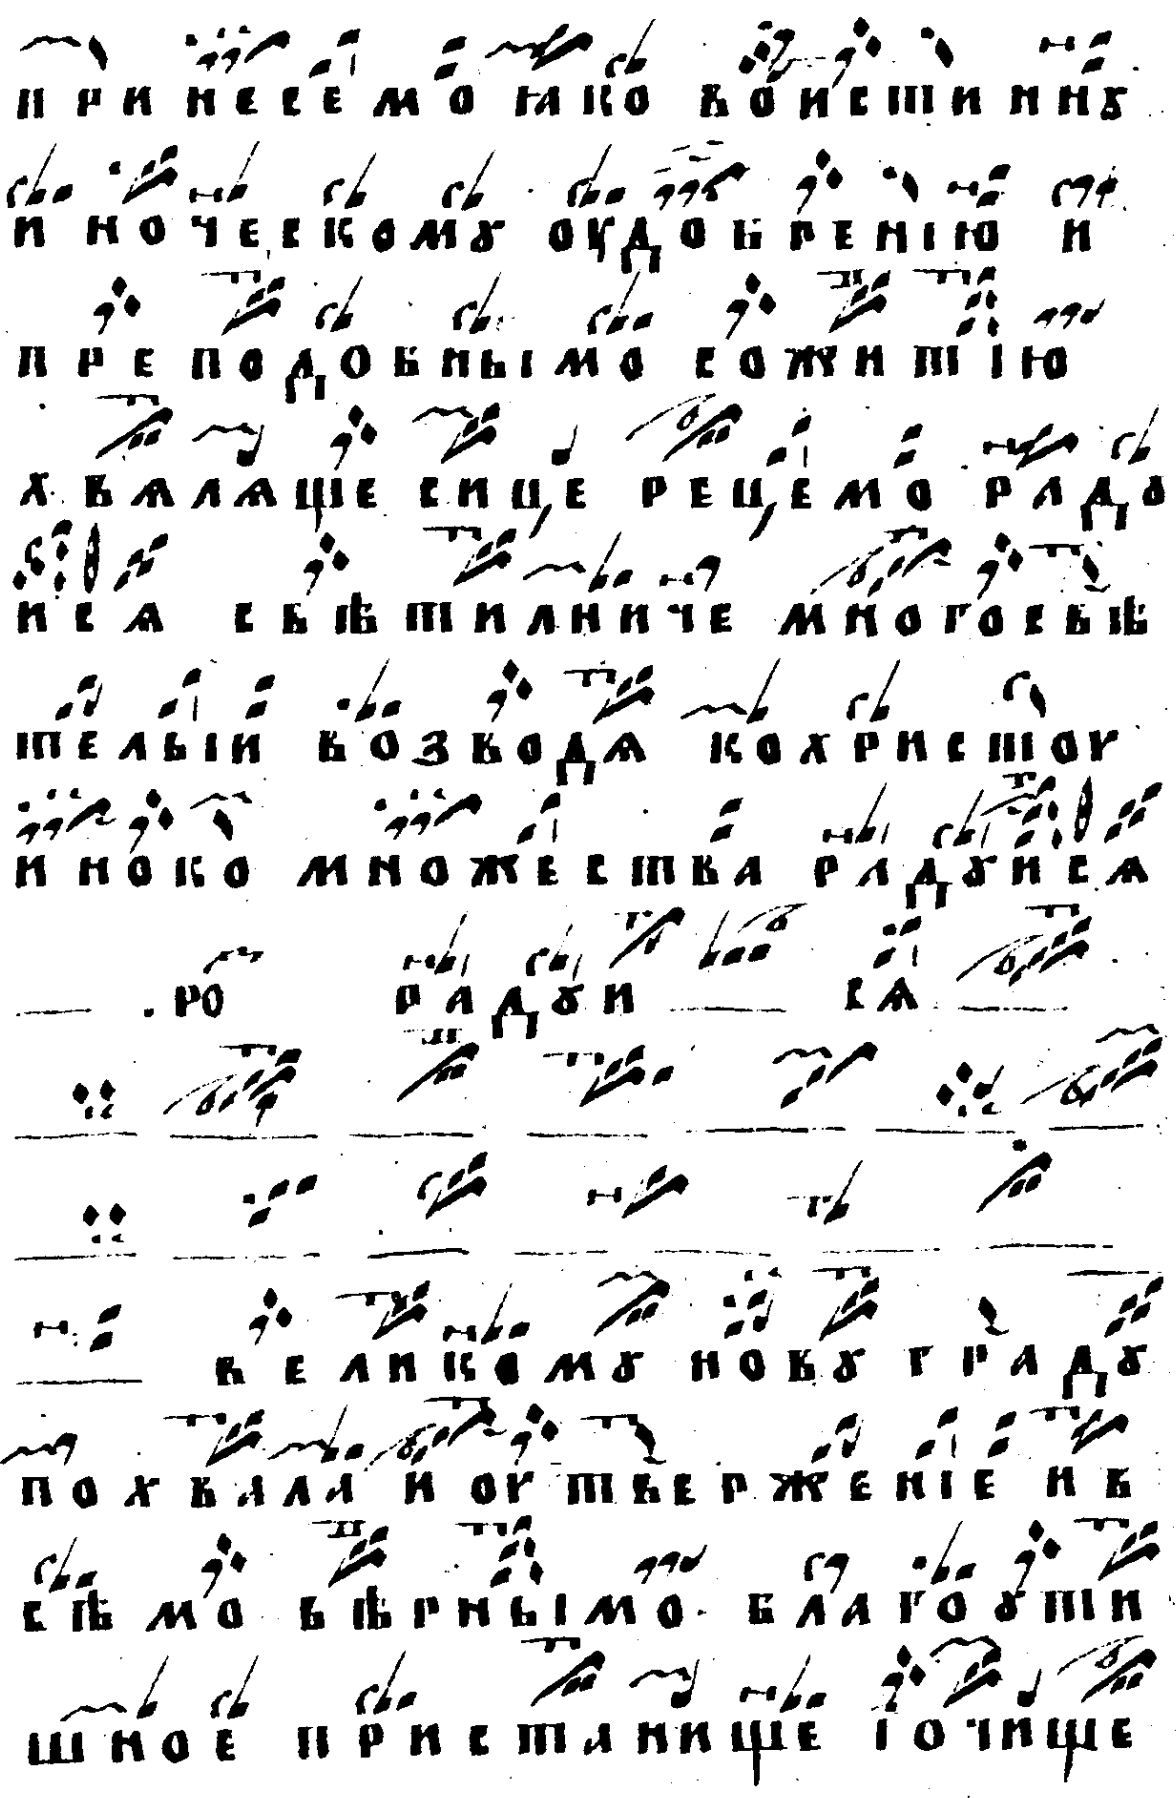 принесемо ꙗко воистинну
иноческому оудобрению и
преподобнымо сожитию
хвѧлѧще сице рецемо раду
исѧ свѣтилниче многосвѣ
телыи возводѧ ко христоу
иноко множества радуисѧ
.ро радуи сѧ
великому нову граду
похвала и оутвержение и в
сѣмо вѣрнымо благоути
шное пристанище ꙇ очище